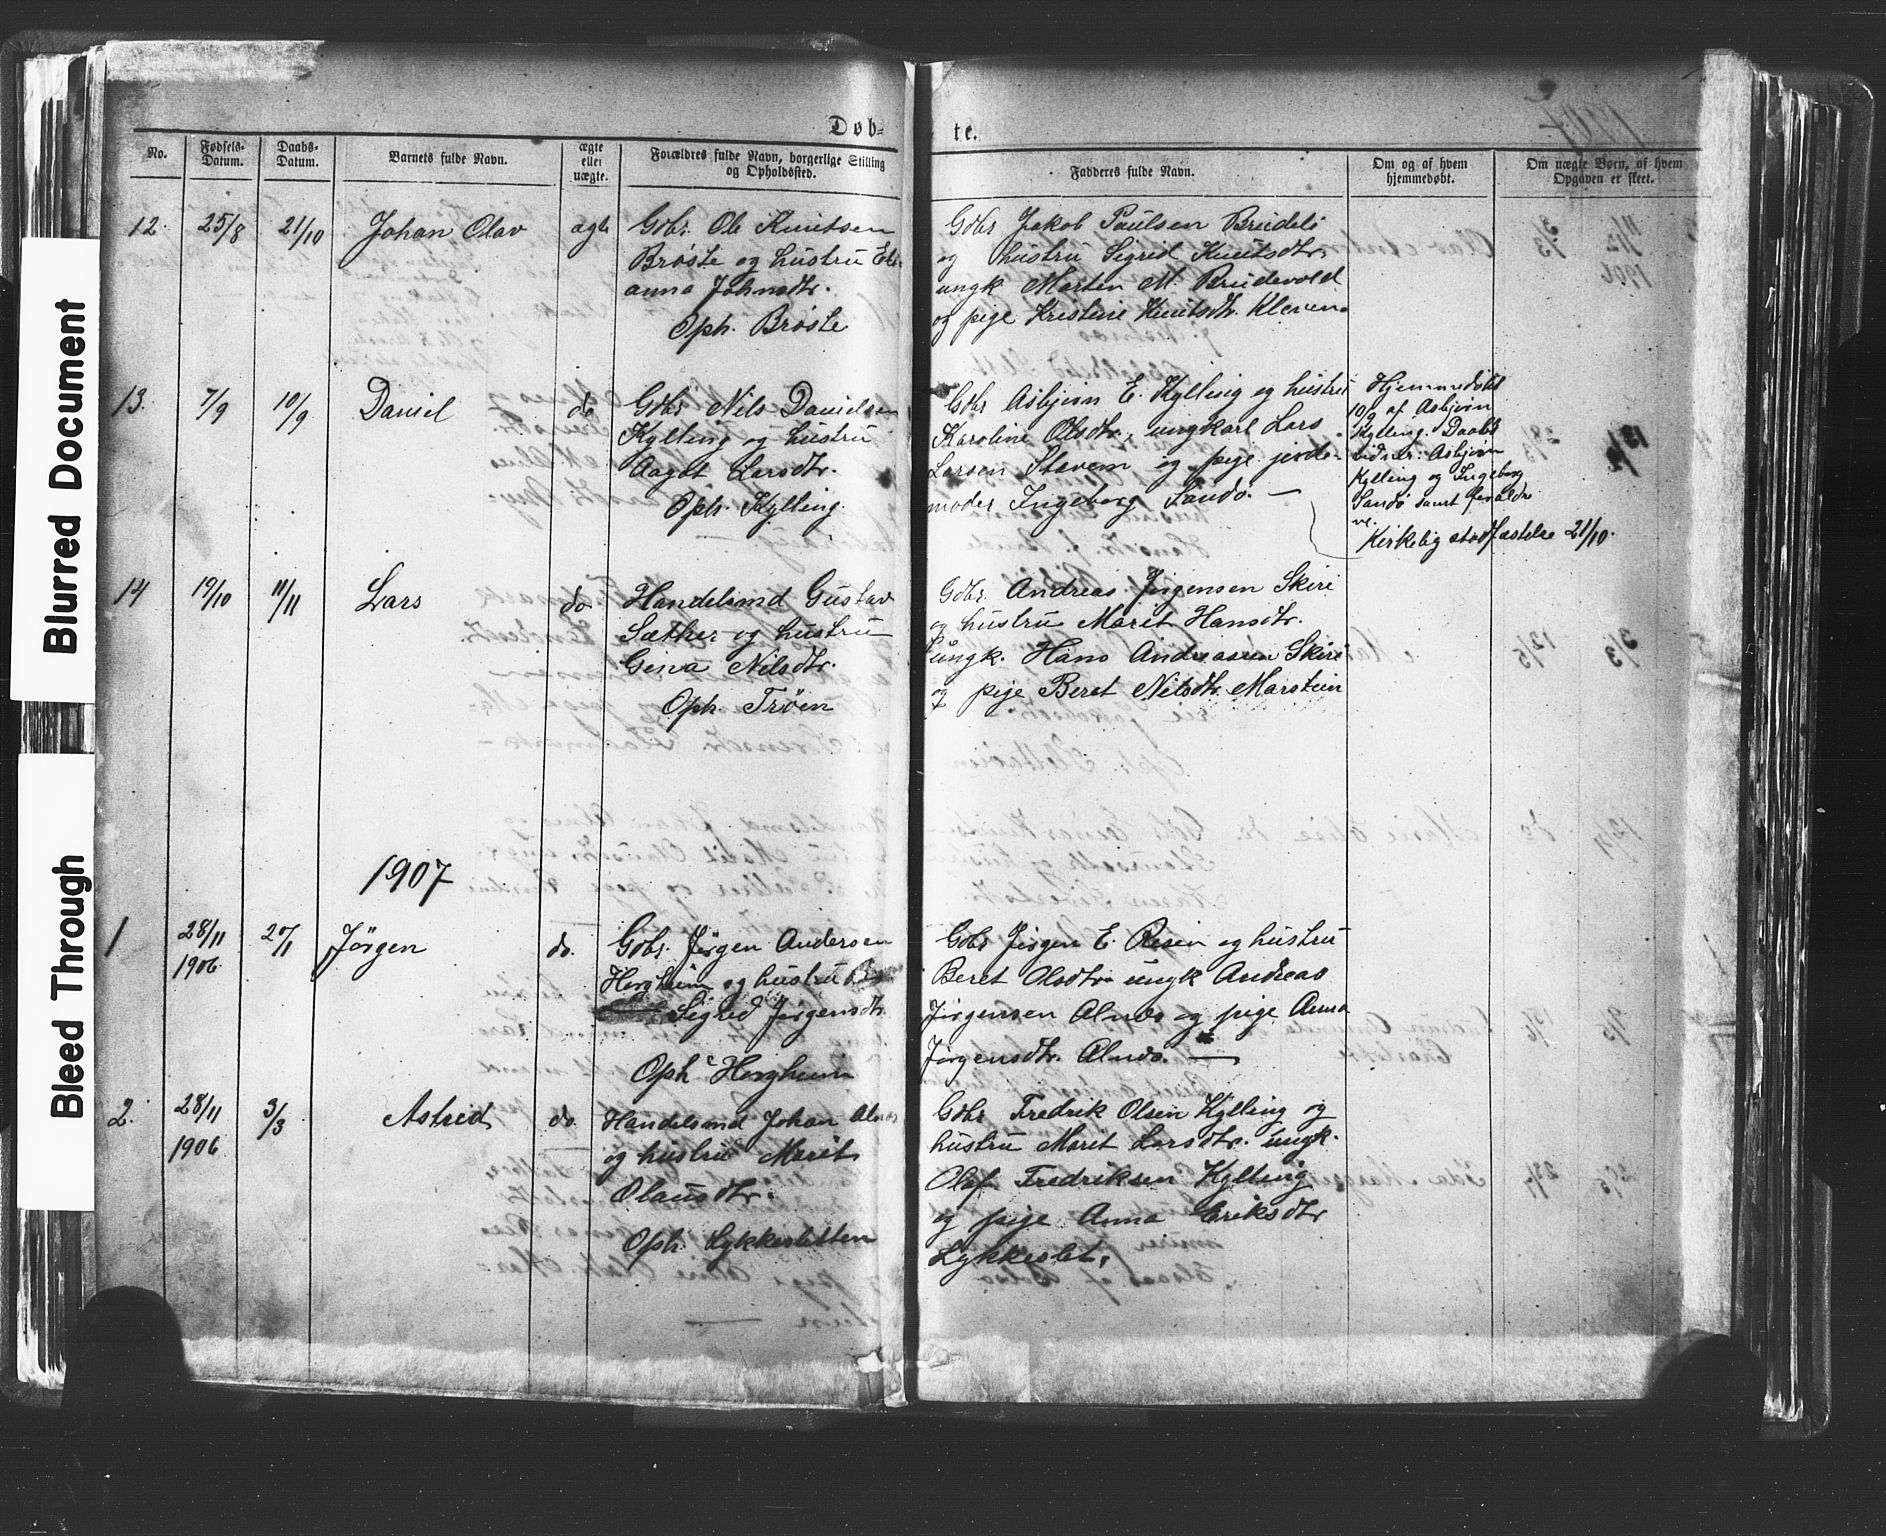 Blurred Document
Bleed Through
Døb-
te.
No.
Fødsels-
Datum.
Daabs-
Datum.
Barnets fulde Navn.
ægte
eller
uægte.
Forældres fulde Navn, borgerlige Stilling
og Opholdssted.
Fadderes fulde Navn.
Om og af hvem
hjemmedøbt.
Om uægte Børn, af hvem
Opgaven er skeet.
12.
25/8
21/10
Johan Olav
ægte
Gbr. Ole Knutsen
Brøste og hustru Eli-
anna Johnsdtr.
Oph. Brøste
Gbr Jakob Paulsen Brudeli
og hustru Sigrid Knutsdtr.
ungk Morten M. Brudevold
og pige Kristine Knutsdtr. Kleven.
13.
7/9
10/9
Daniel
do
Gbr Nils Danielsen
Kylling og hustru
Aagot Larsdtr.
Oph. Kylling.
Gbr Asbjørn E. Kylling og hustru
Karoline Olsdtr., ungkarl Lars
Larsen Stavem og pige jorde-
moder Ingeborg Sandø. —
Hjemmedøbt
10/9 af Asbjørn
Kylling. Daabs
vidner: Asbjørn
Kylling og Ingeborg
Sandø samt foreldre
ne.
Kirkelig stadfæstelse 21/10.
14
19/10
11/11
Lars
do
Handelsmd Gustav
Sæther og hustru
Gina Nilsdtr.
Oph. Trøen
Gbr. Andreas Jørgensen Skiri
og hustru Marit Hansdtr.
ungk. Hans Andreasen Skiri
og pige Beret Nilsdtr. Marstein
1907
1
28/11
1906.
27/1
Jörgen
do.
Gbr. Jörgen Andersen
Horgheim og hustru
Sigrid Jørgensdtr.
Oph. Horgheim
Gbr Jørgen E. Resen og hustru
Beret Olsdtr. ungk Andreas
Jørgensen Alnæs og pige Anna
Jørgensdtr. Alnæs. —
2.
28/11
1906
3/3
Astrid
do.
Handelsmd Johan Alnæs
og hustru Marit
Olausdtr.
Oph. Lykkesletten
Gbr Fredrik Olsen Kylling og
hustru Marit Larsdtr. ungk.
Olaf Fredriksen Kylling
og pige Anna Eriksdtr
Lykkeslet.